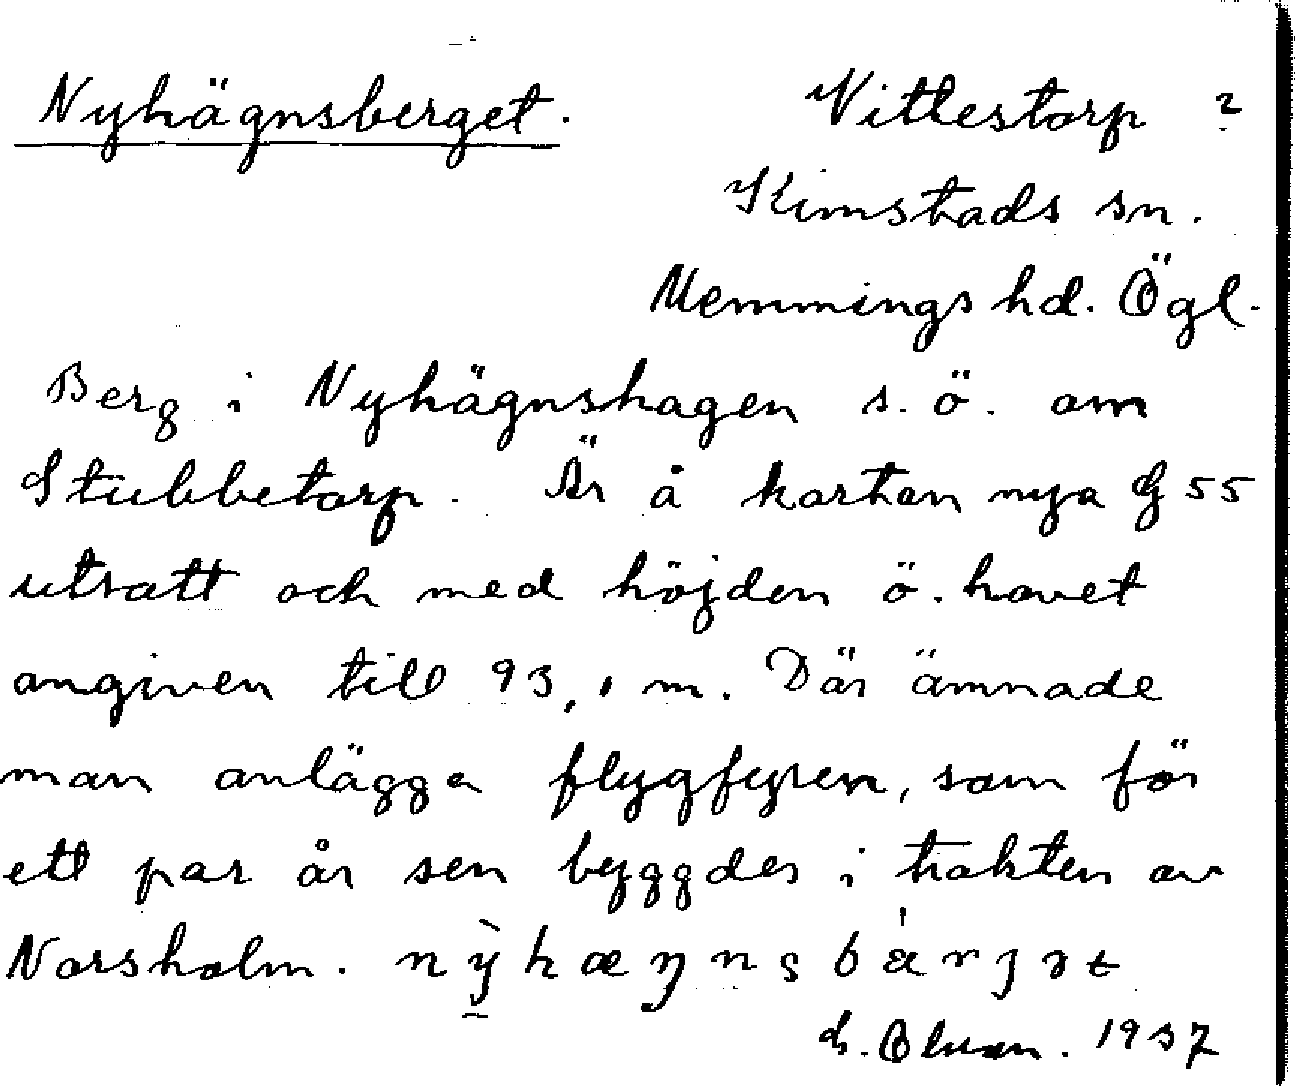 Nyhägnsberget. Vittestorp 2
Kimstads sn.
Memmings hd. Ögl.
Berg i Nyhägnshagen s.ö. om
Stubbetorp. Är å kartan nya G 55
utsatt och med höjden ö. havet
angiven till 93,1 m. Där ämnade
man anlägga flygfyren, som för
ett par år sen byggdes i trakten av
Norsholm.
1937